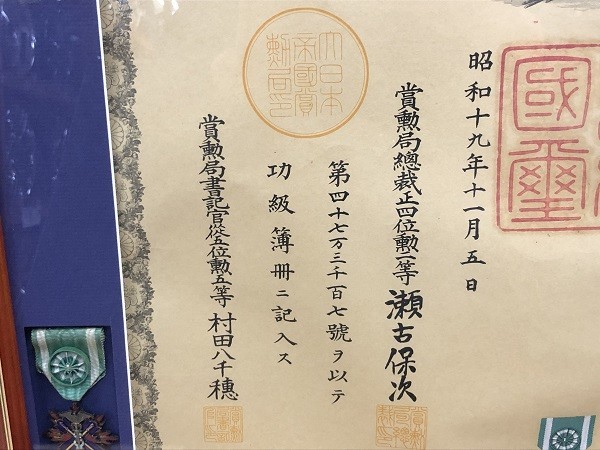 國璽
昭和十九年十一月五日
賞勲局總裁正四位勲一等 瀬古保次
大日本帝國賞勲局印
第四十七万三千百七號ヲ以テ
功級簿冊ニ記入ス
賞勲局書記官従五位勲五等 村田八千穂